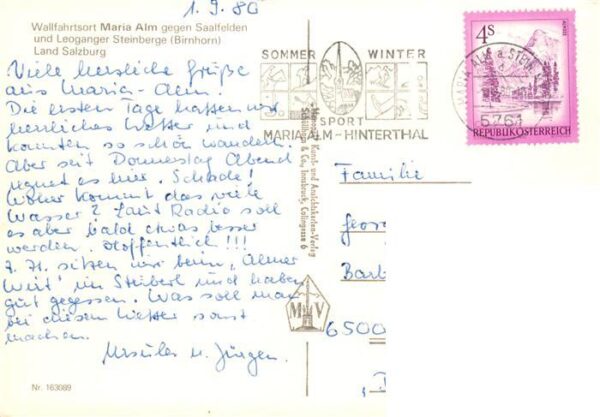 1.9.80
Wallfahrtsort Maria Alm gegen Saalfelden
und Leoganger Steinberge (Birnhorn)
Land Salzburg
Viele herzliche Grüße
aus Maria-Alm!
Die ersten Tage hatten wir
herrliches Wetter und
konnten so schön wandern.
Aber seit Donnerstag Abend
regnet es hier. Schade!
Woher kommt das viele
Wasser? Laut Radio soll
es aber bald etwas besser
werden. Hoffentlich!!!
Z. Zt. sitzen wir beim "Almer
Wirt" im Stüberl und haben
gut gegessen. Was soll man
bei diesem Wetter sonst
machen.
Ursula u. Jürgen.
Nr. 163089
SOMMER WINTER
SPORT
MARIA ALM-HINTERTHAL
Kunst- und Ansichtskarten-Verlag
& Co., Innsbruck,
M V
4 S
ALMSEE
REPUBLIK ÖSTERREICH
MARIA ALM
5761
Familie
Georg
Barb
6500